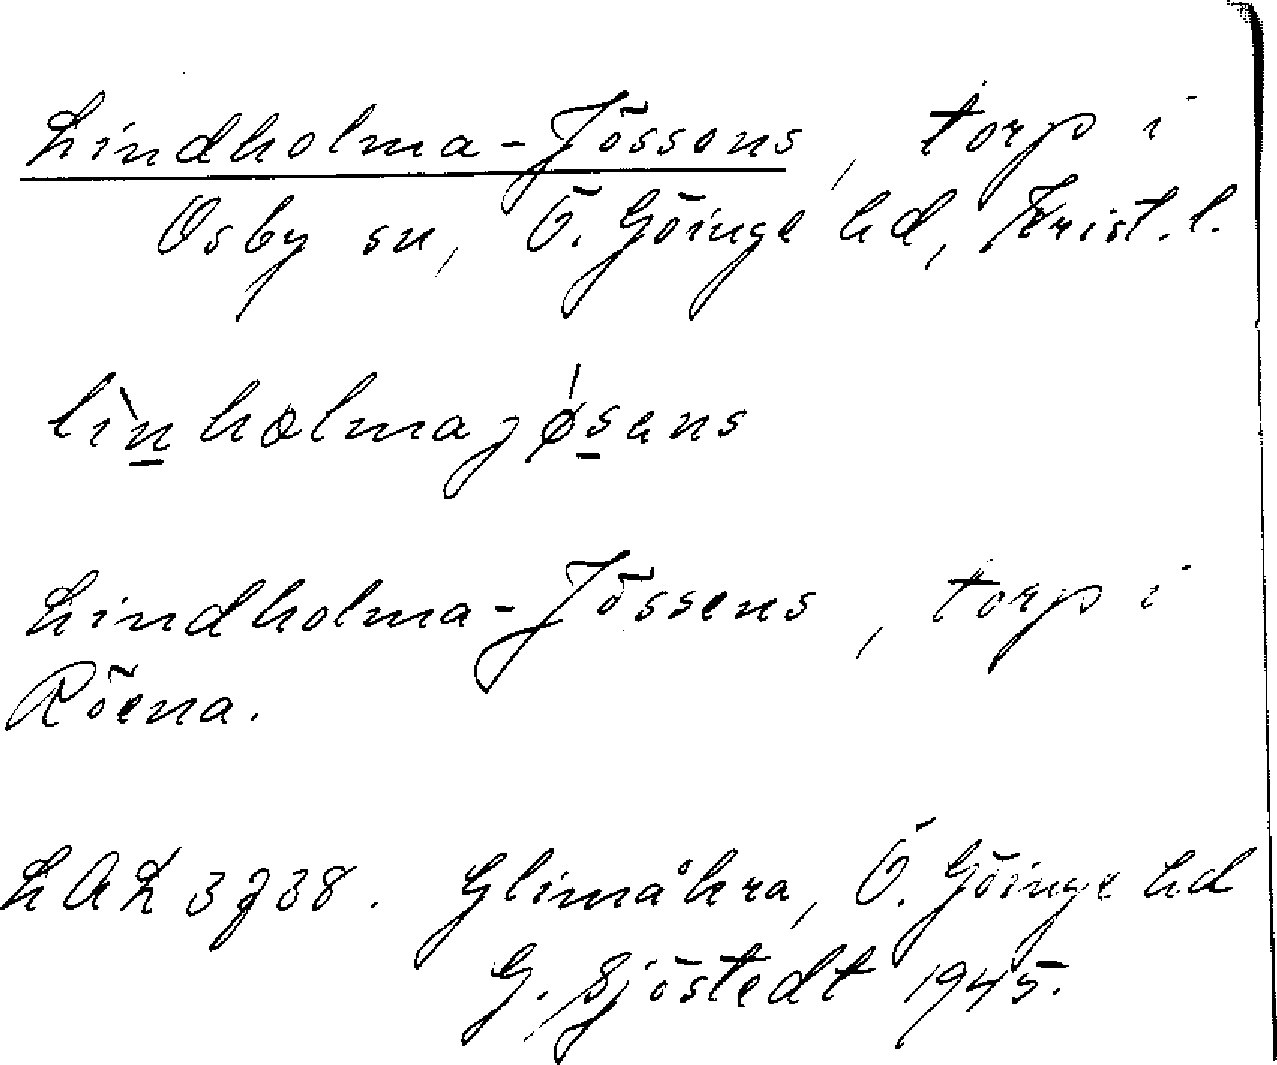 Lindholma-Jössens, torp i
Osby sn, Ö. Göinge hd, Krist. l.
lìn̲holmajǿs̲ens
Lindholma-Jössens, torp i
Röena.
LAL 3738. Glimåkra, Ö. Göinge hd
G. Sjöstedt 1945.